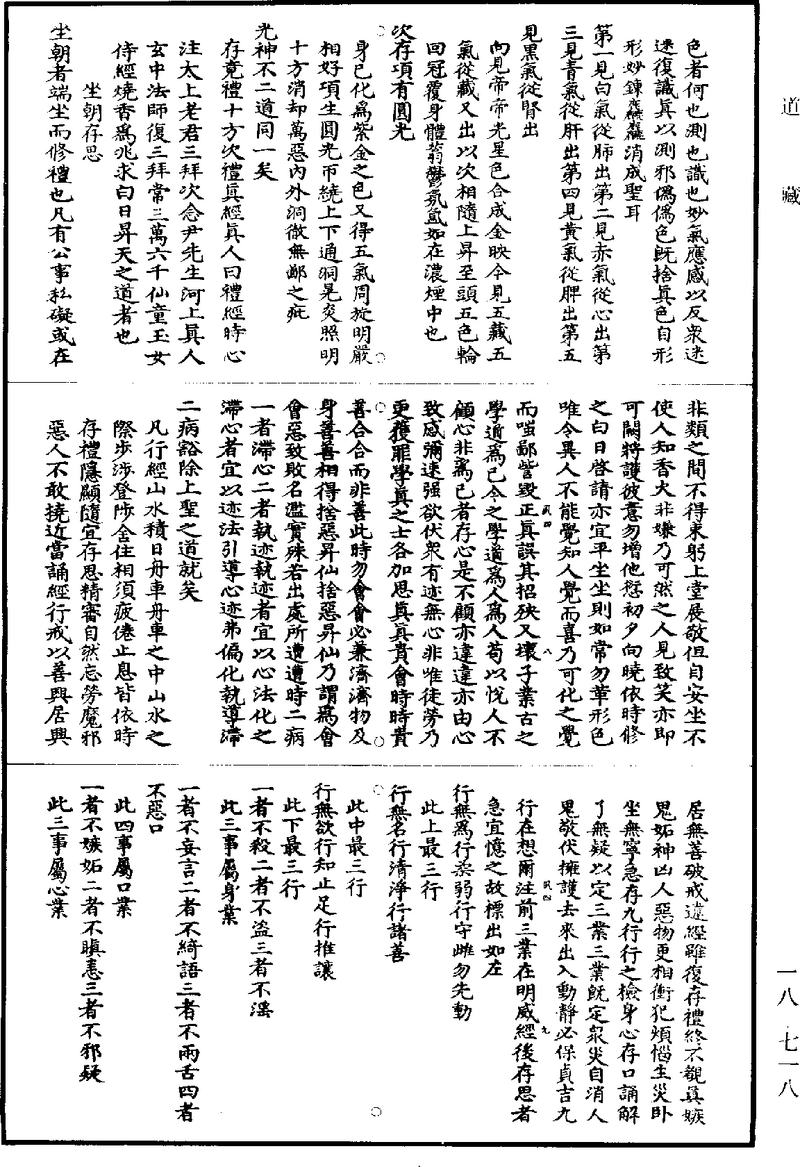 道藏
色者何也測也識也妙氣應感以反衆迷
迷復識真以測邪僞僞色旣捨真色自形
形妙鍊麤麤消成聖耳
第一見白氣從肺出第二見赤氣從心出第
三見青氣從肝出第四見黃氣從脾出第五
見黑氣從腎出
向見帝帝光星色合成金映今見五藏五
氣從藏又出以次相隨上昇至頭五色輪
回冠覆身體蓊鬱氛氳如在濃煙中也
次存項有圓光
身已化爲紫金之色又得五氣周旋明嚴
相好項生圓光帀繞上下通洞晃奕照明
十方消却萬惡內外洞徹無鄙之疵
光神不二道同一矣
存竟禮十方次禮真經真人曰禮經時心
注太上老君三拜次念尹先生河上真人
玄中法師復三拜常三萬六千仙童玉女
侍經燒香爲兆求白日昇天之道者也
坐朝存思
坐朝者端坐而修禮也凡有公事私礙或在
非類之間不得束躬上堂展敬但自安坐不
使人知香火非嫌乃可然之人見致笑亦即
可闕將護彼意勿增他愆初夕向曉依時修
之白日啓請亦宜平坐坐則如常勿華形色
唯令異人不能覺知人覺而喜乃可化之覺
而嗤鄙訾毀正真誤其招殃又壞子業古之
學道爲己今之學道爲人爲人苟以悅人不
顧心非爲己者存心是不顧亦違違亦由心
致感彌速强欲伏衆有迹無心非唯徒勞乃
更獲罪學真之士各加思真真貴會時時貴
善合合而非善此時勿會會必兼濟濟物及
身善善相得捨惡昇仙捨惡昇仙乃謂爲會
會惡致敗名濫實殊若出處所遭遭時二病
一者滯心二者執迹執迹者宜以心法化之
滯心者宜以迹法引導心迹弗偏化執導滯
二病豁除上聖之道就矣
凡行經山水積日舟車舟車之中山水之
際步涉登陟金住相須疲倦止息皆依時
存禮隱顯隨宜存思精審自然忘勞魔邪
惡人不敢撓近當誦經行戒以善興居興
居無善破戒違經雖復存禮終不覩真嫉
鬼妬神凶人惡物更相衝犯煩惱生災臥
坐無寧急存九行行之檢身心存口誦解
了無疑以定三業三業旣定衆災自消人
鬼敬伏擁護去來出入動靜必保貞吉九
行在想爾注前三業在明威經後存思者
急宜憶之故標出如左
行無爲行柔弱行守雌勿先動
此上最三行
行無名行清淨行諸善
此中最三行
行無欲行知止足行推讓
此下最三行
一者不殺二者不盜三者不淫
此三事屬身業
一者不妄言二者不綺語三者不兩舌四者
不惡口
此四事屬口業
一者不嫉妬二者不瞋恚三者不邪疑
此三事屬心業
一八 七一八